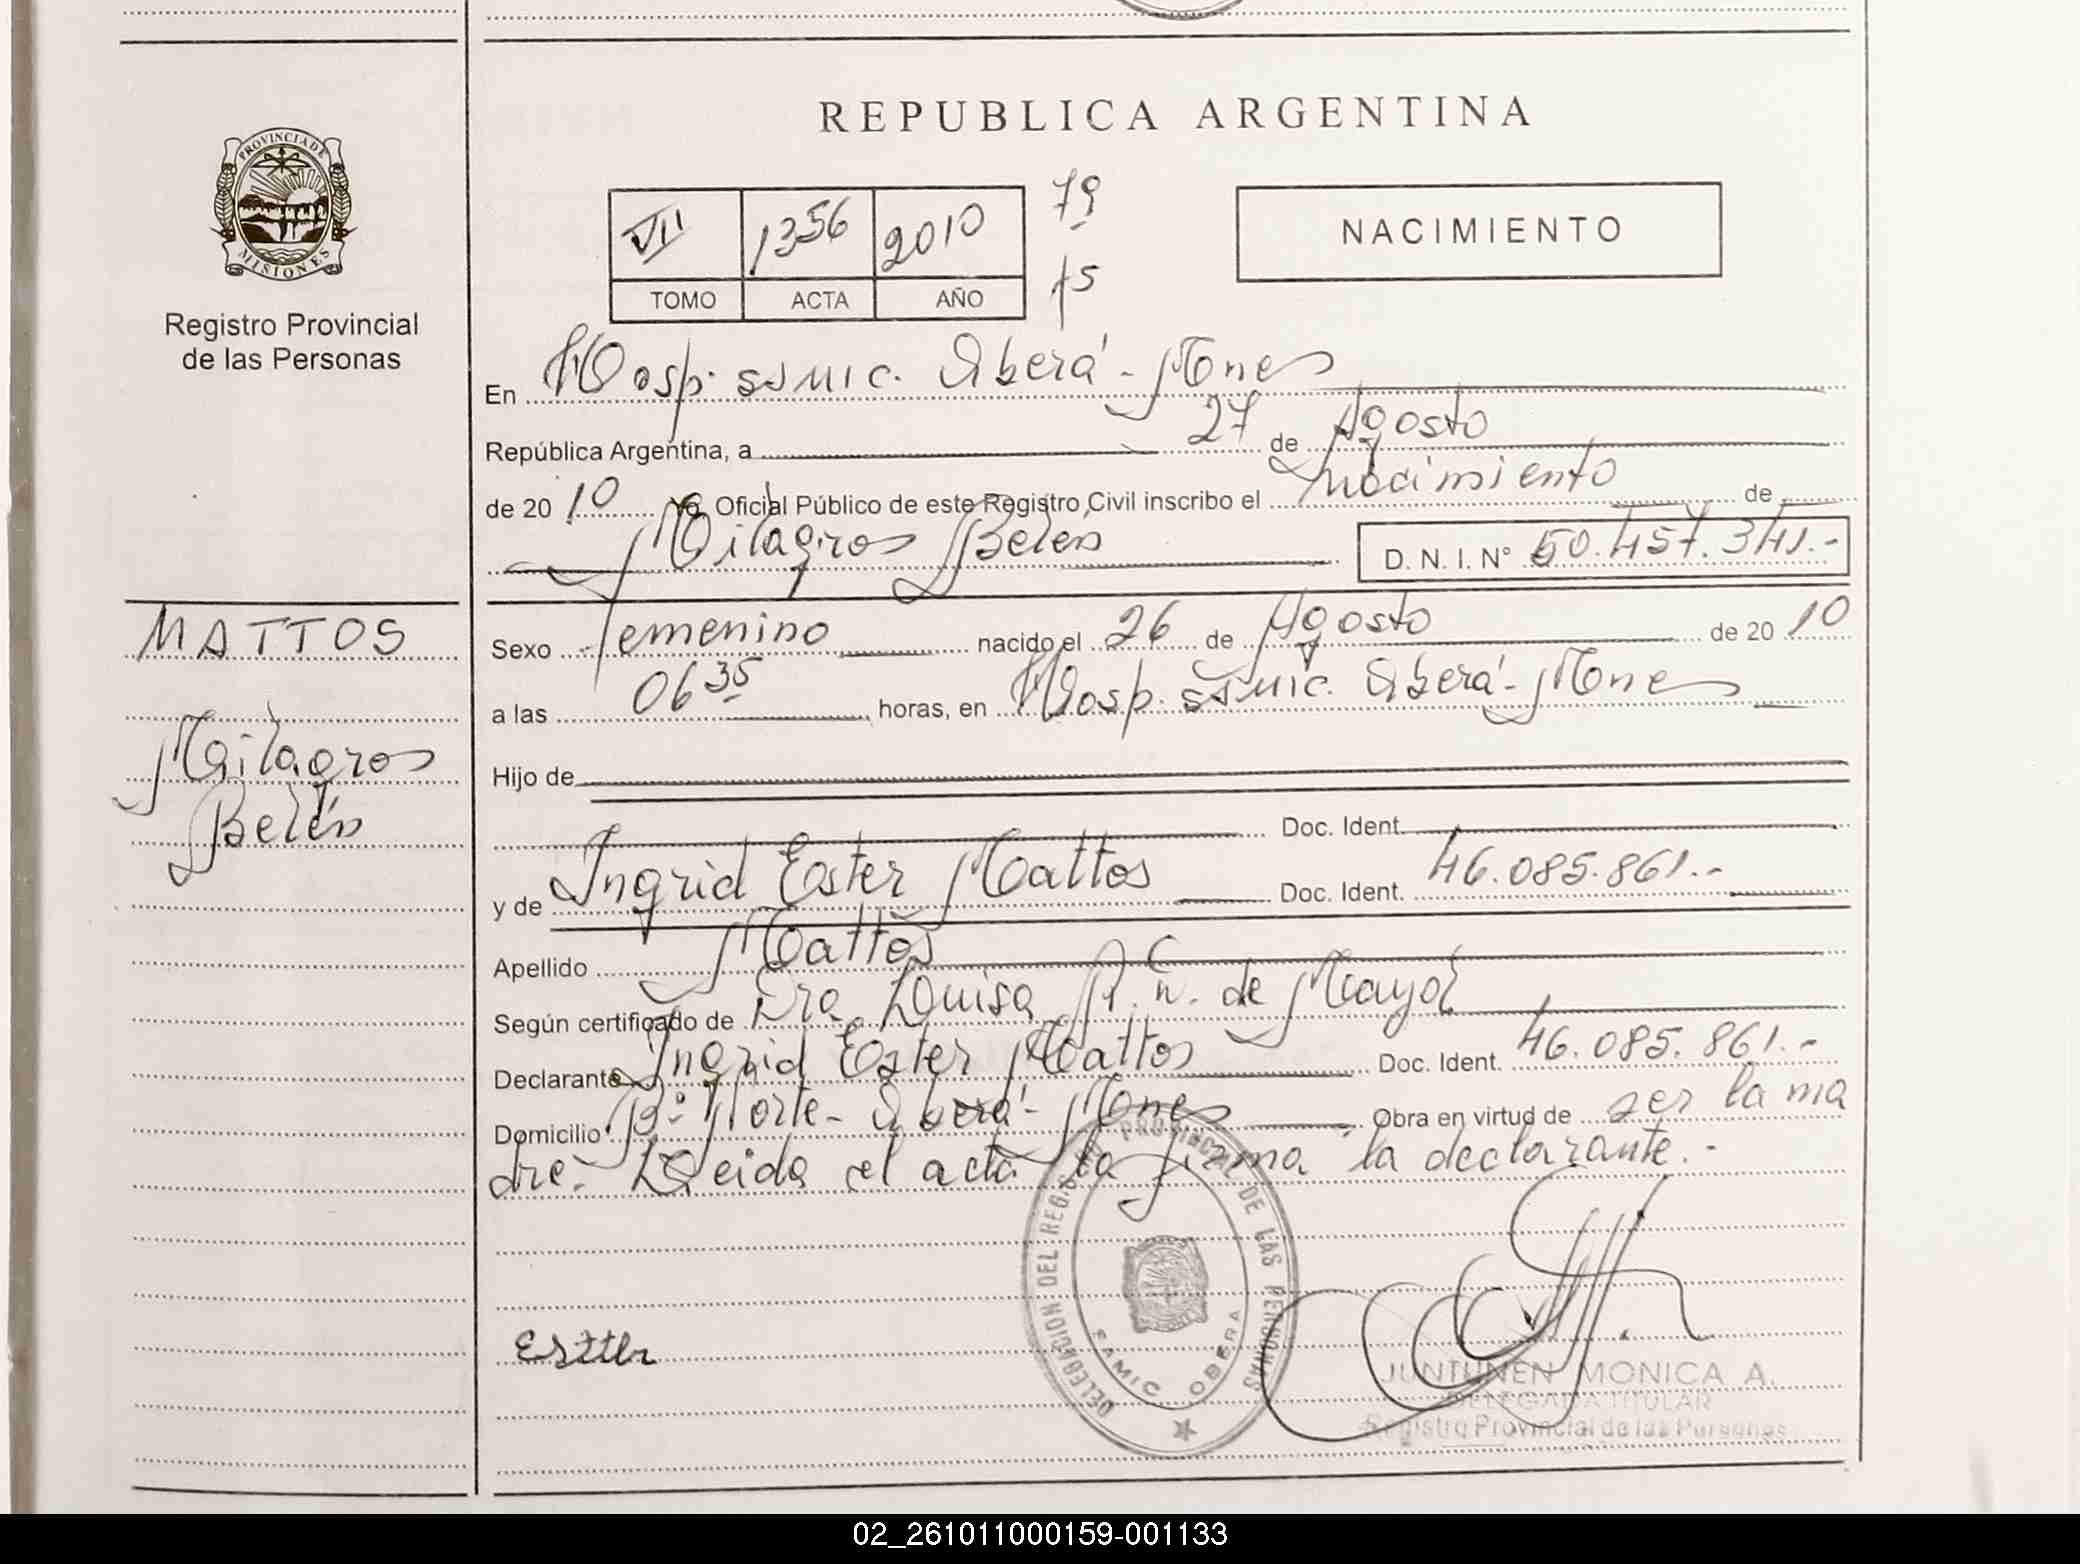 REPUBLICA ARGENTINA
PROVINCIA DE
MISIONES
Registro Provincial
de las Personas
VII 1356 2010
TOMO ACTA AÑO
79
15
NACIMIENTO
En Hosp. SSMIC. Oberá - Mnes
República Argentina, a 27 de Agosto
de 2010 Yo Oficial Público de este Registro Civil inscribo el Nacimiento de
Milagros Belén D. N. I. N° 50.457.341.-
MATTOS
Milagros
Belén
Sexo femenino nacido el 26 de Agosto de 2010
a las 06 35 horas, en Hosp. SSMIC. Oberá - Mnes
Hijo de
Doc. Ident.
y de Ingrid Ester Mattos Doc. Ident. 46.085.861.-
Apellido Mattos
Según certificado de Dra. Luisa de Mayol
Declarante Ingrid Ester Mattos Doc. Ident. 46.085.861.-
Domicilio B° Norte - Oberá - Mnes Obra en virtud de ser la ma
dre. Leida el acta la firma la declarante.-
DELEGACION DEL REG. PROVINCIAL DE LAS PERSONAS
SAMIC OBERA
JUNTUNEN MONICA A.
DELEGADA TITULAR
Registro Provincial de las Personas
02_261011000159-001133